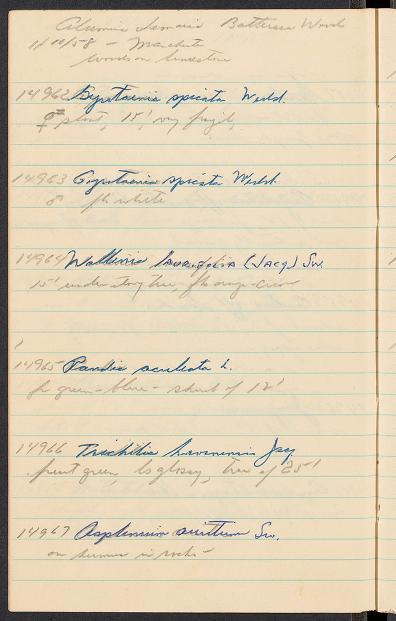 Jamaica Battersea Wood
11/10/58 - Manchester
woods on limestone
14962 Gymtaenia spicata Willd.
♀ plant, 15', very fragile
14963 Gymtaenia spicata Willd.
♂ fls white
14964 Wallenia laurifolia (Jacq) Sw.
15' understory tree, fls orange-
14965 Randia aculeata L.
fr green-blue - shrub of 12'
14966 Trichilia havanensis Jacq
fruit green, lvs glossy, tree of 25'
14967 Asplenium auritum Sw.
on humus in rocks -